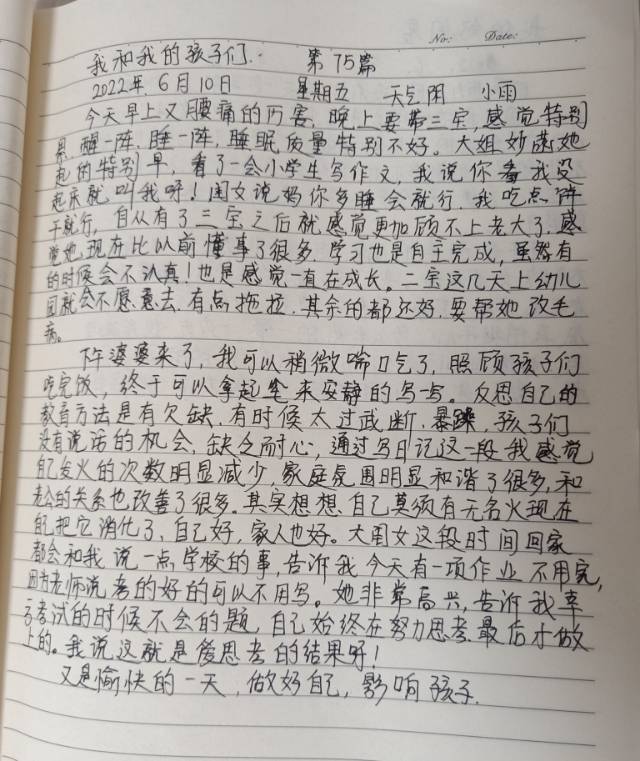 No: Date:
我和我的孩子们. 第75篇
2022年6月10日 星期五 天气阴 小雨
今天早上又腰痛的厉害,晚上要带三宝,感觉特别
累,醒一阵,睡一阵,睡眠质量特别不好。大姐妙菡她
起的特别早,看了一会小学生写作文,我说你看我没
起床就叫我呀!闺女说妈你多睡会就行,我吃点饼
干就行,自从有了三宝之后就感觉更加顾不上老大了,感
觉她现在比以前懂事了很多,学习也是自主完成,虽然有
的时候会不认真!也是感觉一直在成长。二宝这几天上幼儿
园就会不愿意去,有点拖拉,其余的都还好,要帮她改毛
病。
下午婆婆来了,我可以稍微喘口气了,照顾孩子们
吃完饭,终于可以拿起笔来安静的写写。反思自己的
教育方法是有欠缺,有时候太过武断,暴躁,孩子们
没有说话的机会,缺乏耐心,通过写日记这一段我感觉
自己发火的次数明显减少,家庭氛围明显和谐了很多,和
老公的关系也改善了很多。其实想想,自己莫须有无名火现在
自己把它消化了,自己好,家人也好。大闺女这段时间回家
都会和我说一点学校的事,告诉我今天有一项作业不用写,
因为老师说考的好的可以不用写。她非常高兴,告诉我幸
亏考试的时候不会的题,自己始终在努力思考,最后才做
上的。我说这就是爱思考的结果呀!
又是愉快的一天,做好自己,影响孩子.